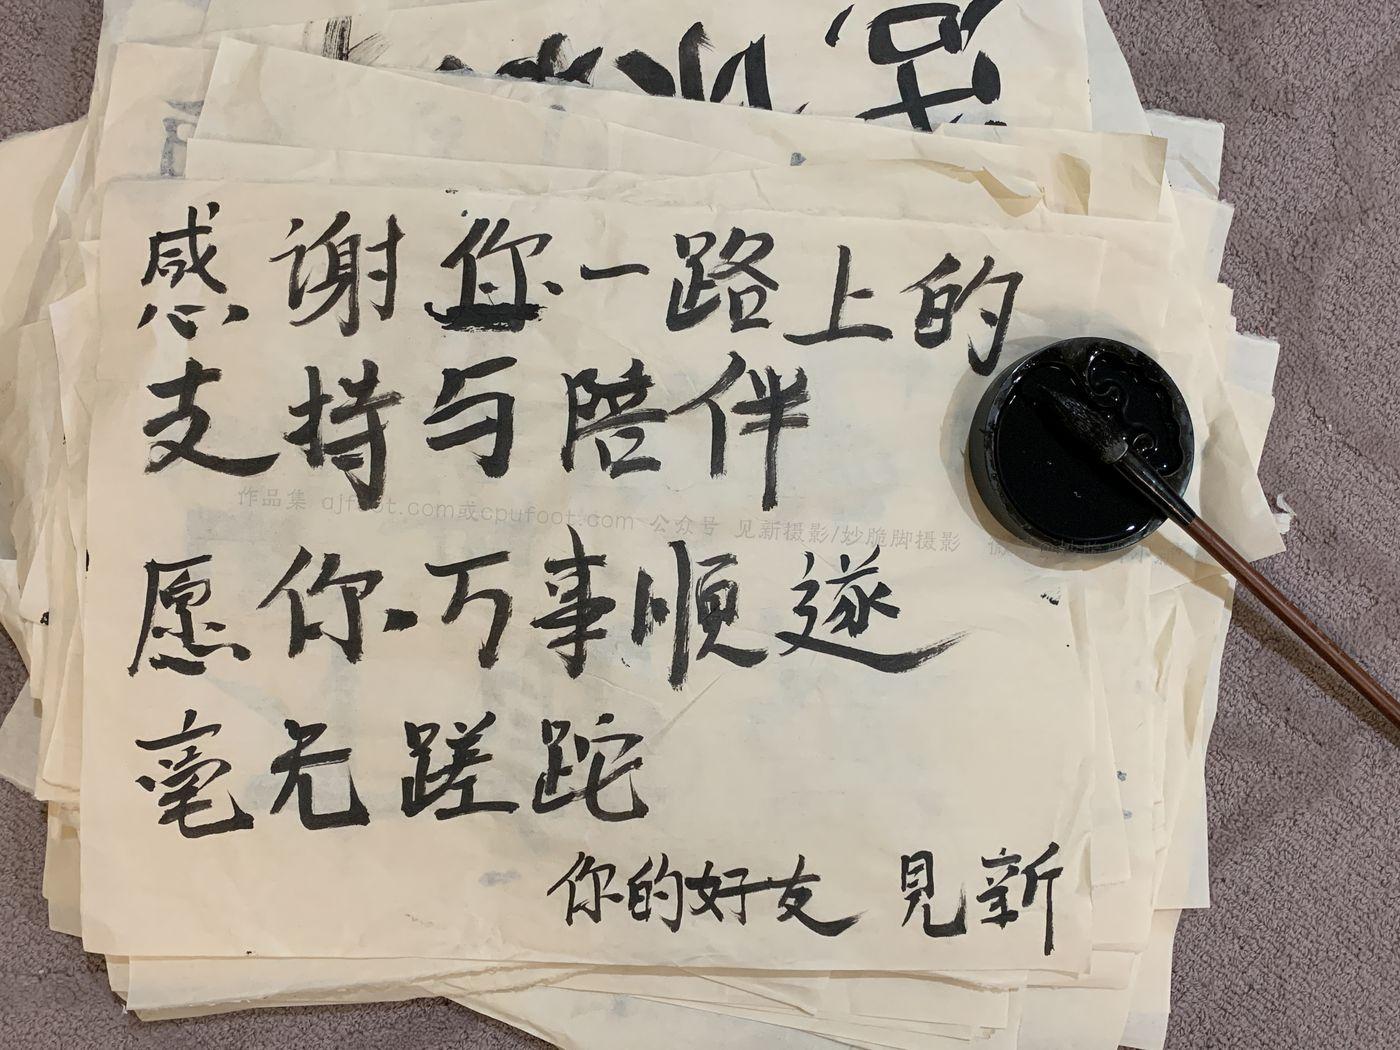 感谢您一路上的
支持与陪伴
作品集 qjfoot.com或cpufoot.com 公众号 见新摄影/妙脆脚摄影
愿你万事順遂
毫无蹉跎
你的好友 見新